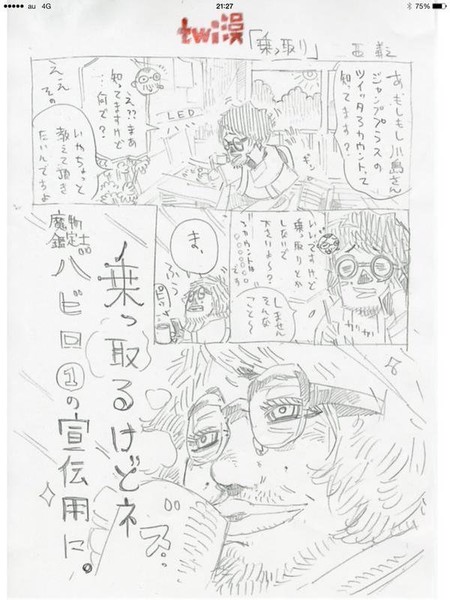 au 4G
21:27
75%
twi漫
「乗っ取り」
あ、もしもし 川島さん
ジャンププラスの
ツイッタアカウントって
知ってます?
え?? まあ
知ってますけど
…何で?
LED
ええ
その
いやちょっと
教えて頂き
たいんですよ
いいですけど
乗っ取りとか
しないで
下さいよ〜?
しません
そんな
こと〜
ま、
乗っ取るけどネ
魔物鑑定士
バビロ①の宣伝用に。
ズ…